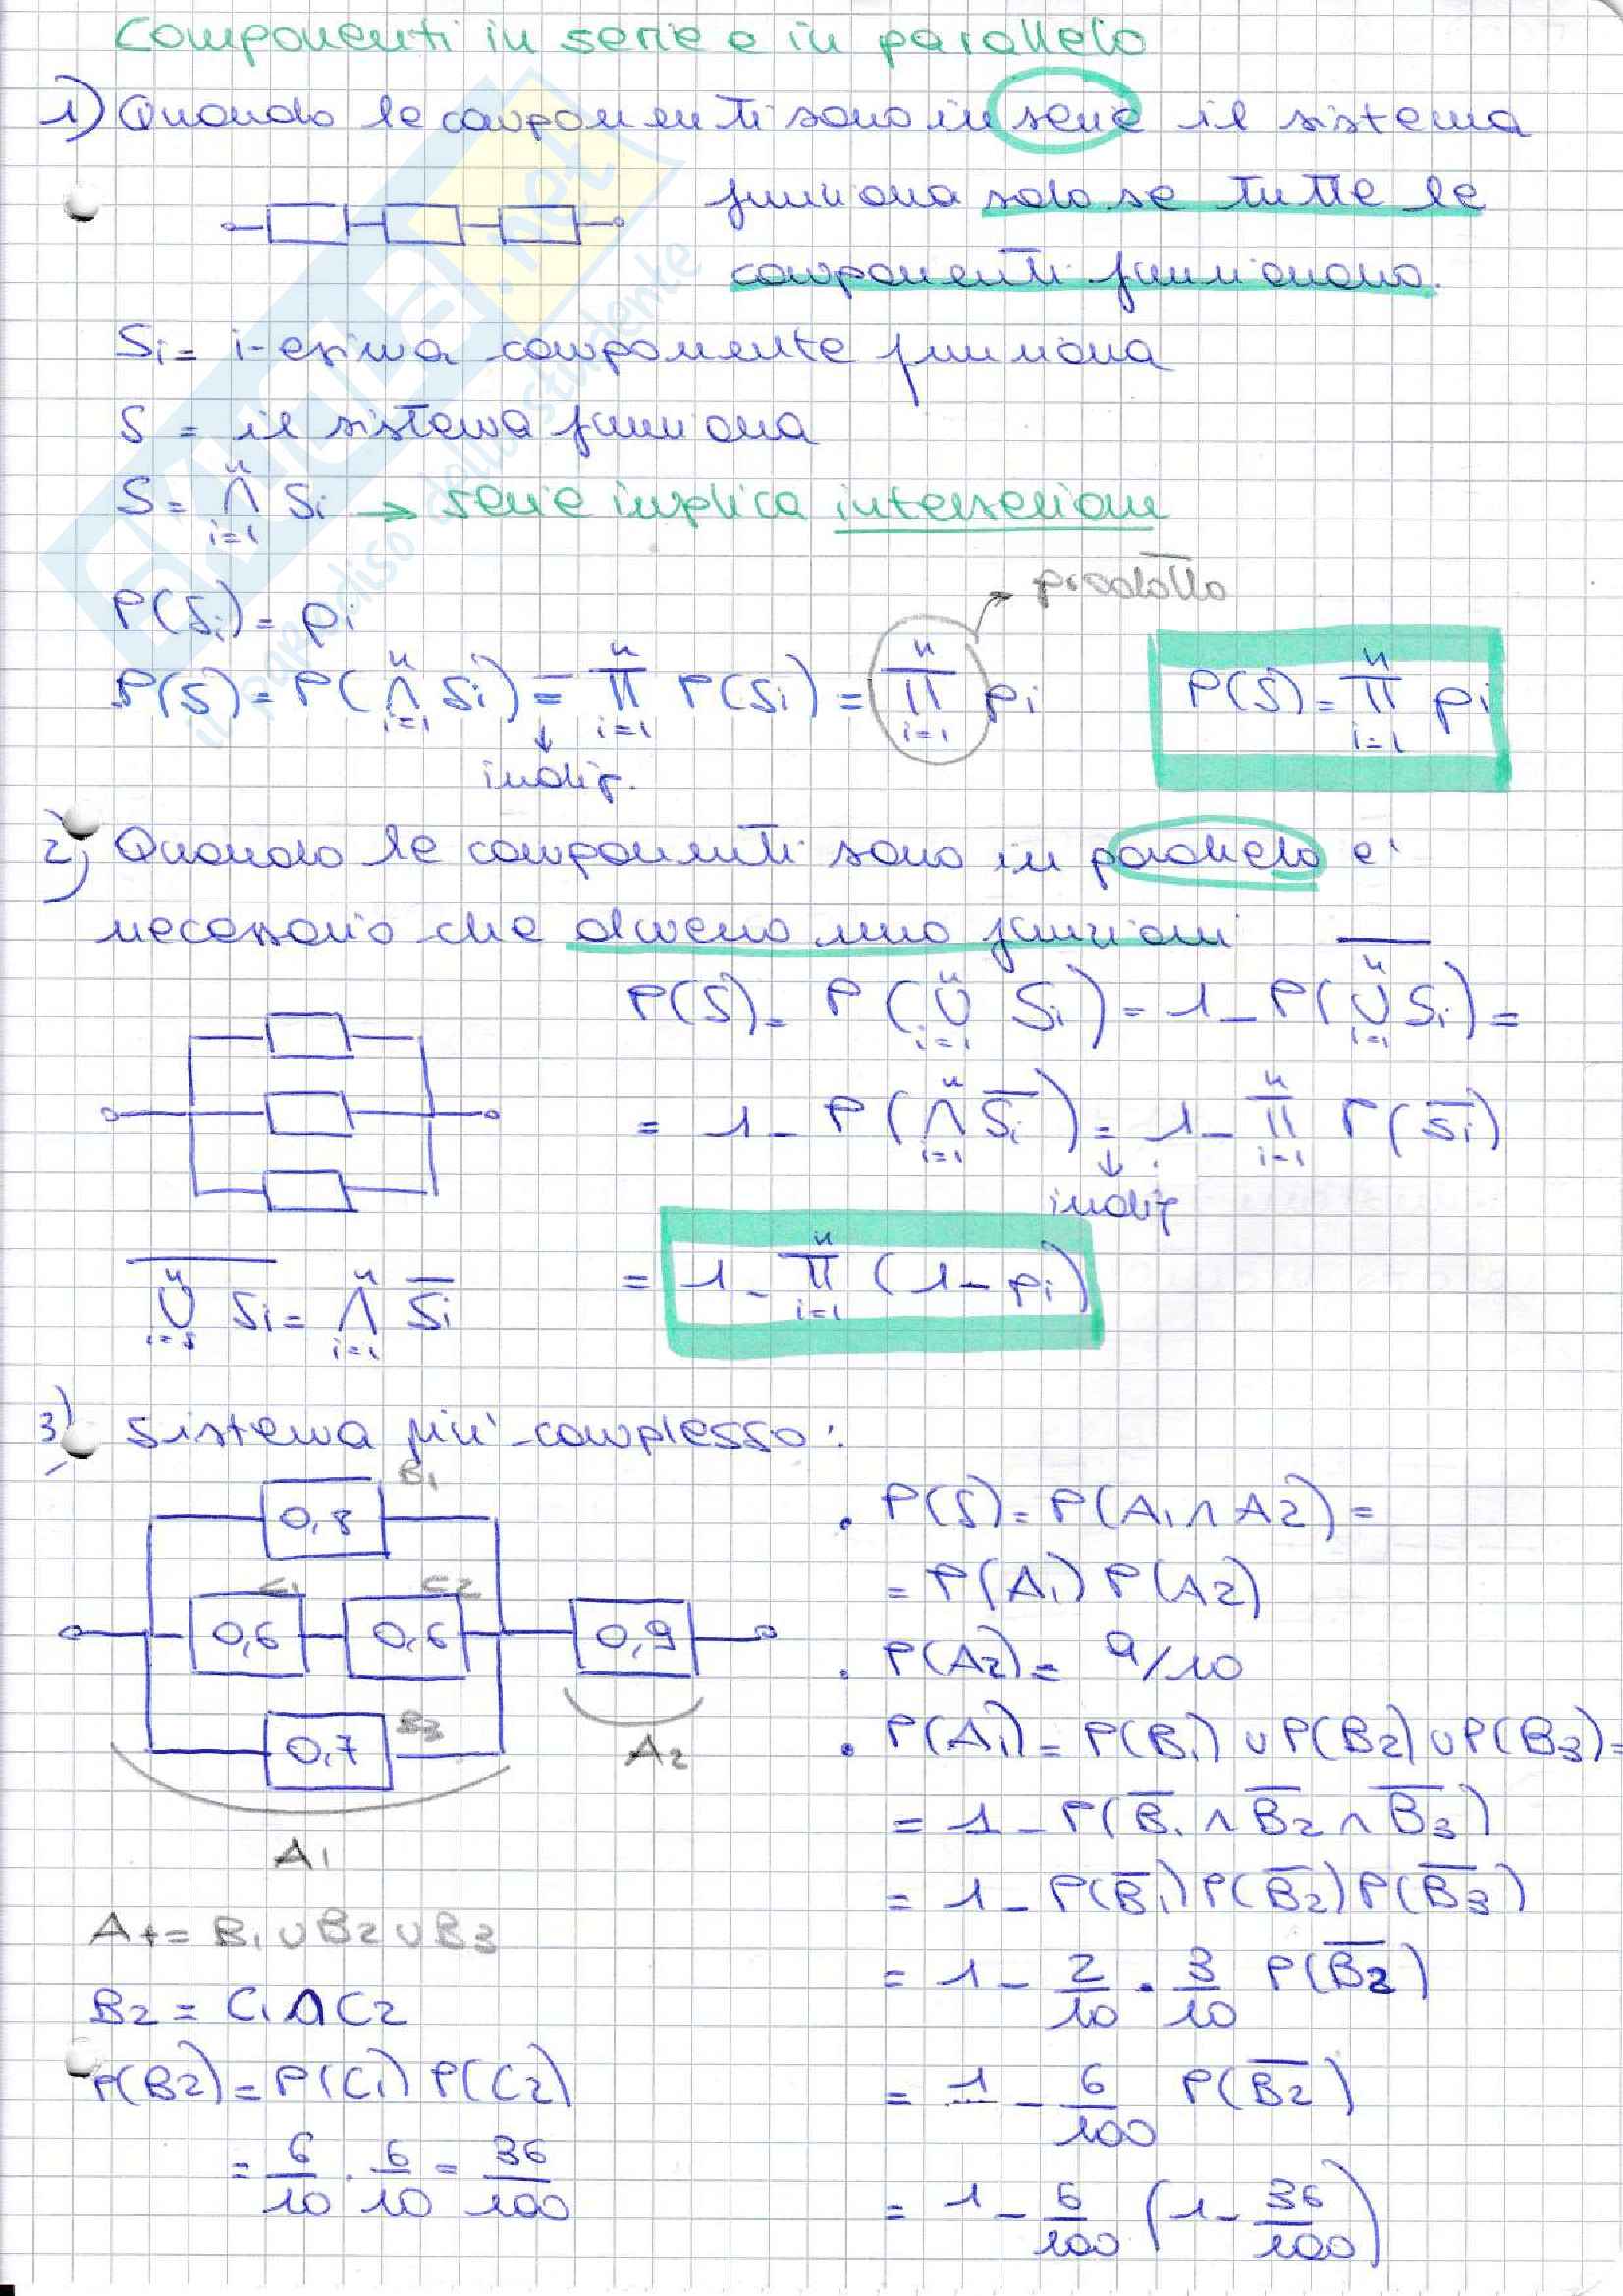 Componenti in serie e in parallelo
1) Quando le componenti sono in serie il sistema
funziona solo se tutte le
componenti funzionano.
Si = i-esima componente funziona
S = il sistema funziona
S = ⋂ⁿᵢ₌₁ Si → serie implica intersezione
P(Si) = pi
prodotto
P(S) = P(⋂ⁿᵢ₌₁ Si) = ∏ⁿᵢ₌₁ P(Si) = ∏ⁿᵢ₌₁ pi
P(S) = ∏ⁿᵢ₌₁ pi
↓
indip.
2) Quando le componenti sono in parallelo e'
necessario che almeno uno funzioni
P(S) = P(⋃ⁿᵢ₌₁ Si) = 1 - P(\overline{⋃ⁿᵢ₌₁ Si}) =
= 1 - P(⋂ⁿᵢ₌₁ \overline{Si}) = 1 - ∏ⁿᵢ₌₁ P(\overline{Si})
↓
indip
\overline{⋃ⁿᵢ₌₁ Si} = ⋂ⁿᵢ₌₁ \overline{Si}
= 1 - ∏ⁿᵢ₌₁ (1 - pi)
3) Sistema piu' complesso:
B1
0,8
C1
C2
0,6
0,6
0,9
B3
0,7
A2
A1
A1 = B1 ∪ B2 ∪ B3
B2 = C1 ∩ C2
P(B2) = P(C1) P(C2)
= 6/10 · 6/10 = 36/100
• P(S) = P(A1 ∩ A2) =
= P(A1) P(A2)
• P(A2) = 9/10
• P(A1) = P(B1) ∪ P(B2) ∪ P(B3) =
= 1 - P(\overline{B1} ∩ \overline{B2} ∩ \overline{B3})
= 1 - P(\overline{B1}) P(\overline{B2}) P(\overline{B3})
= 1 - 2/10 · 3/10 P(\overline{B2})
= 1 - 6/100 P(\overline{B2})
= 1 - 6/100 (1 - 36/100)
SKUOLA.net
il paradiso dello studente